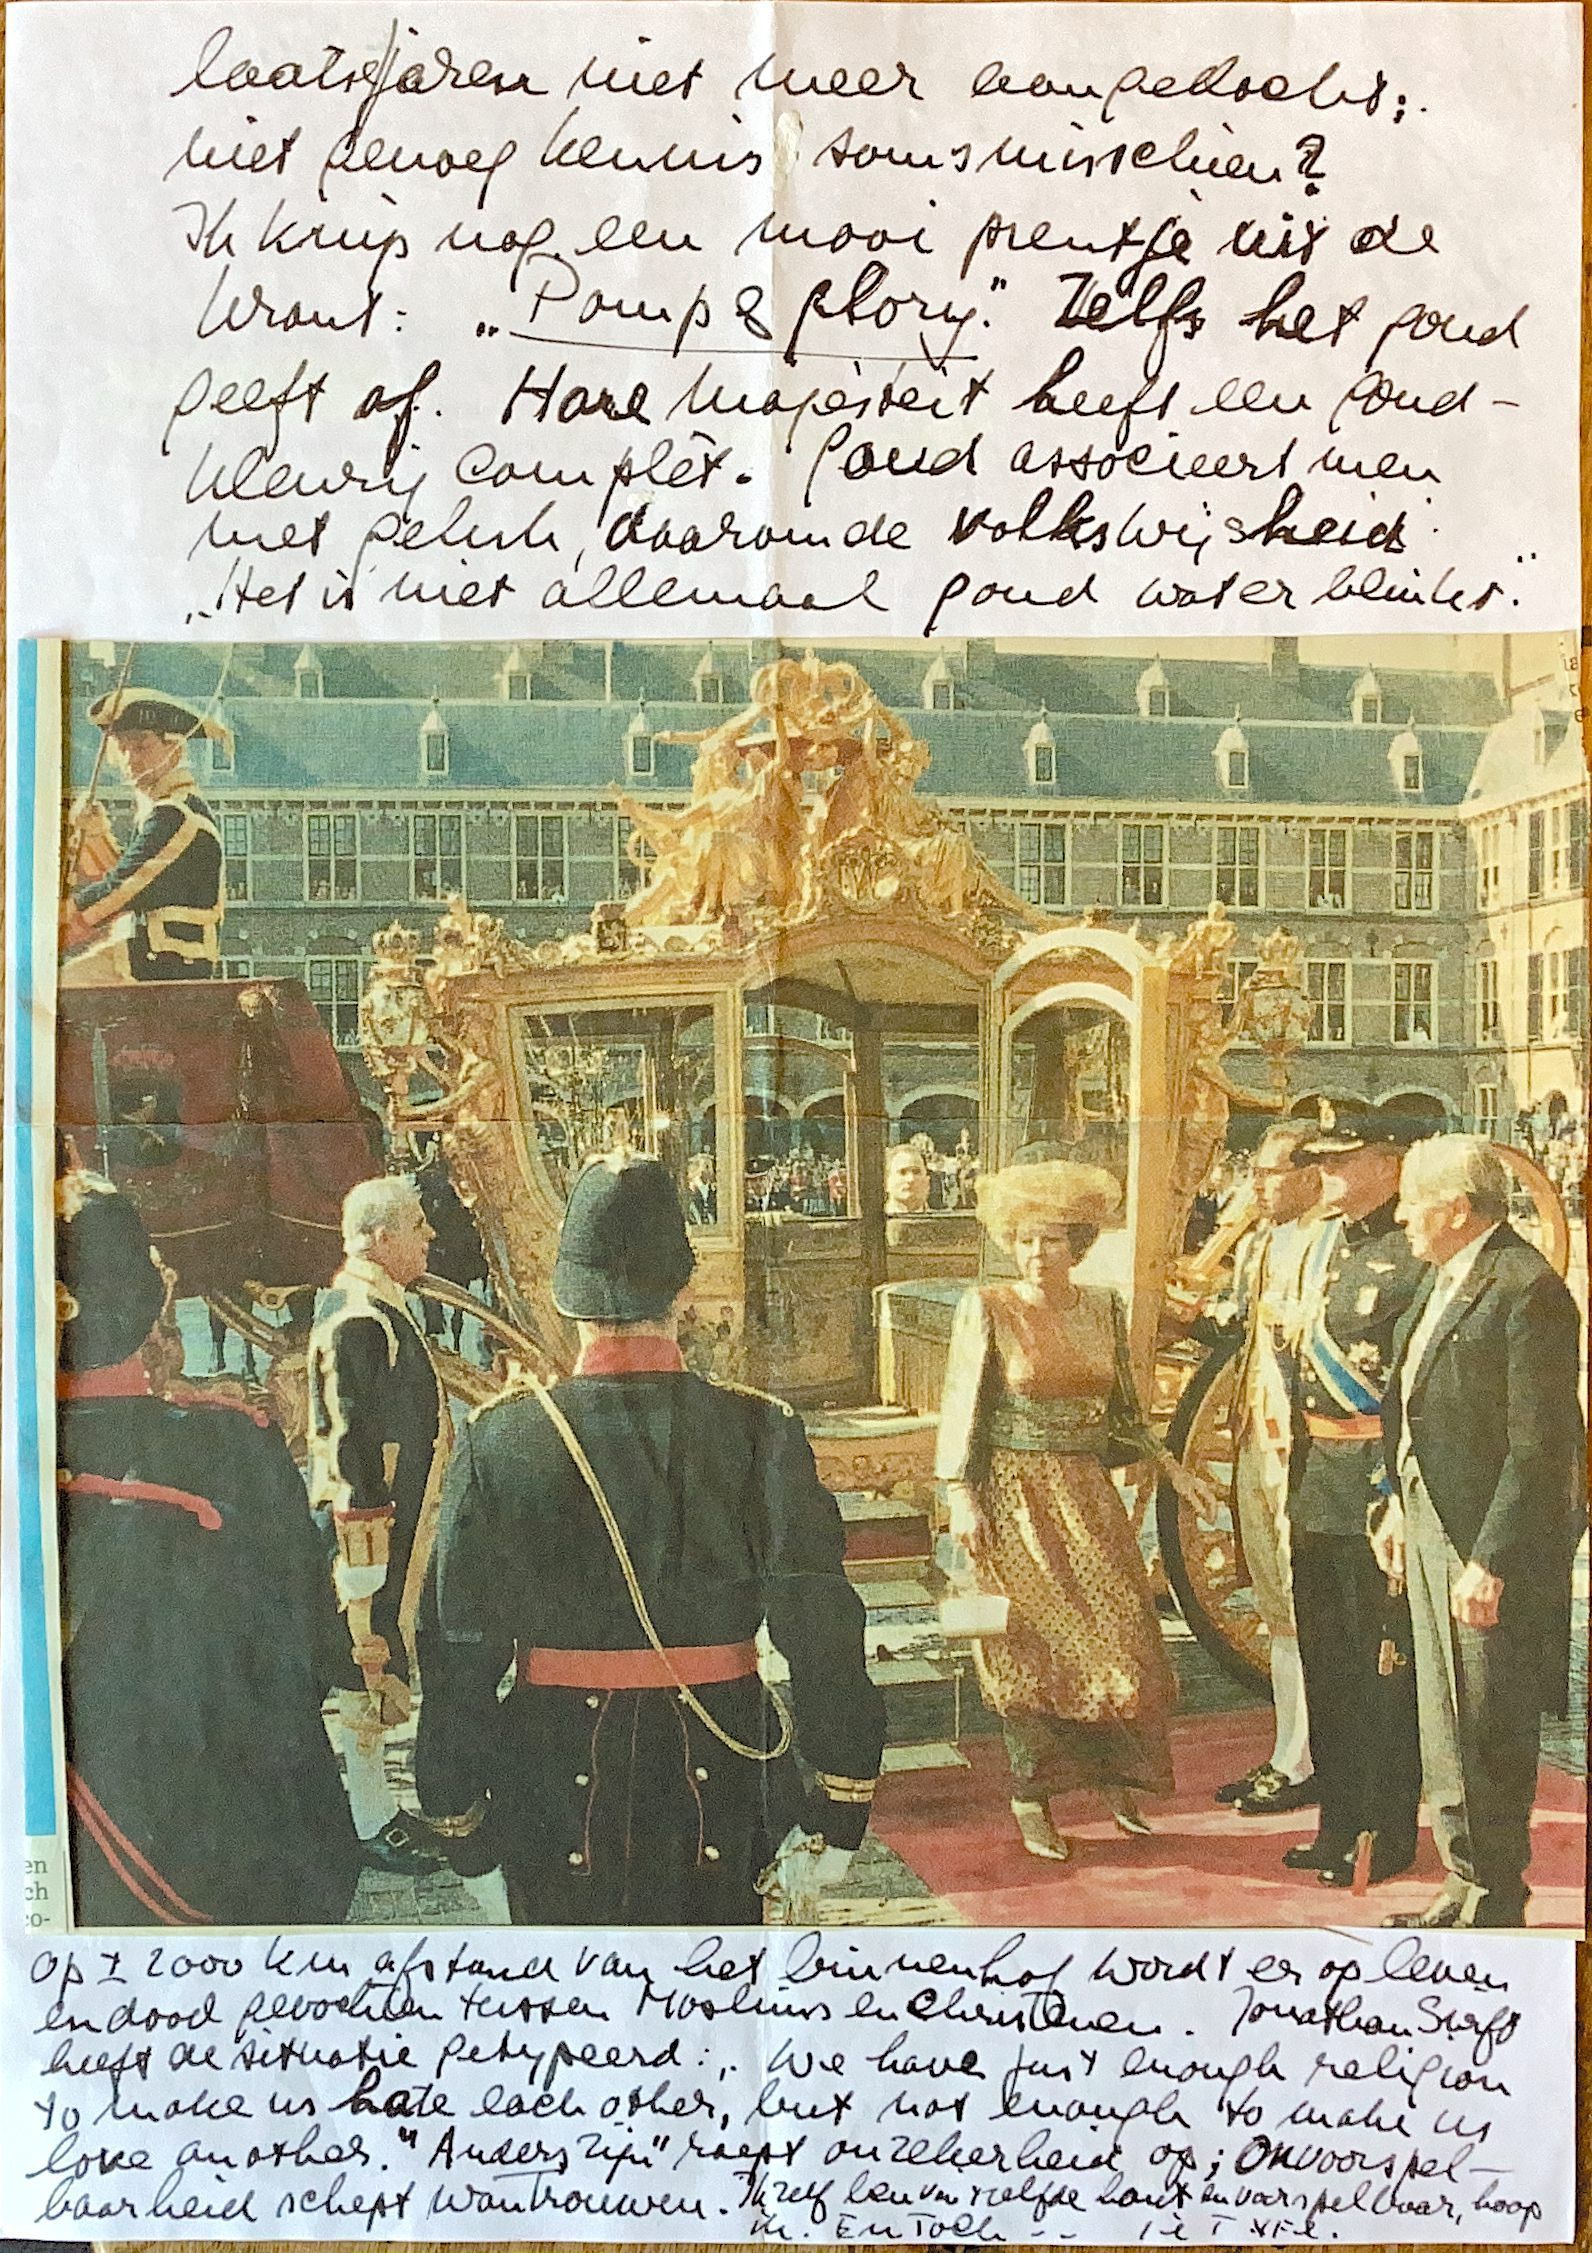 laatste jaren niet meer aangedacht;.
niet genoeg kennis soms misschien?
Ik knip nog een mooi prentje uit de
krant: „Pomp & glory." Zelfs het goud
geeft af. Hare Majesteit heeft een goud-
kleurig complèt. Goud associeert men
met geluk, daarom de volkswijsheid:
„Het is niet allemaal goud wat er blinkt."
en
ch
co-
op ± 2000 km afstand van het binnenhof wordt er op leven
en dood gevochten tussen Moslims en Christenen. Jonathan Swift
heeft de situatie getypeerd: „We have just enough religion
to make us hate each other, but not enough to make us
love another." "Anders zijn" roept onzekerheid op; Onvoorspel-
baarheid schept wantrouwen. Ik zelf ben van 't zelfde hout en voorspelbaar, hoop
ik. En Toch --